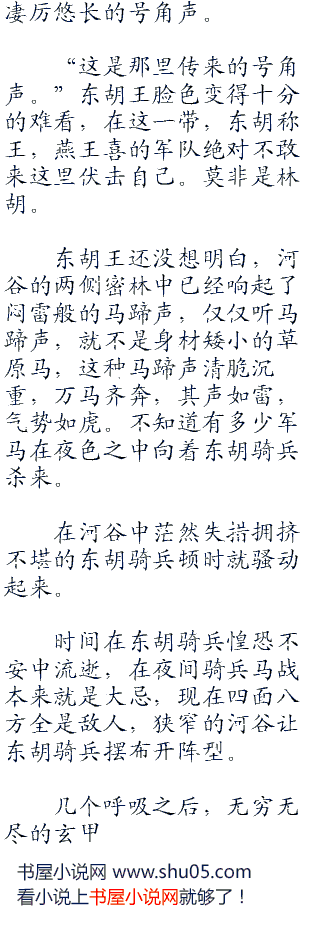 凄厉悠长的号角声。
“这是那里传来的号角
声。”东胡王脸色变得十分
的难看，在这一带，东胡称
王，燕王喜的军队绝对不敢
来这里伏击自己。莫非是林
胡。
东胡王还没想明白，河
谷的两侧密林中已经响起了
闷雷般的马蹄声，仅仅听马
蹄声，就不是身材矮小的草
原马，这种马蹄声清脆沉
重，万马齐奔，其声如雷，
气势如虎。不知道有多少军
马在夜色之中向着东胡骑兵
杀来。
在河谷中茫然失措拥挤
不堪的东胡骑兵顿时就骚动
起来。
时间在东胡骑兵惶恐不
安中流逝，在夜间骑兵马战
本来就是大忌，现在四面八
方全是敌人，狭窄的河谷让
东胡骑兵摆布开阵型。
几个呼吸之后，无穷无
尽的玄甲
书屋小说网 www.shu05.com
看小说上书屋小说网就够了！